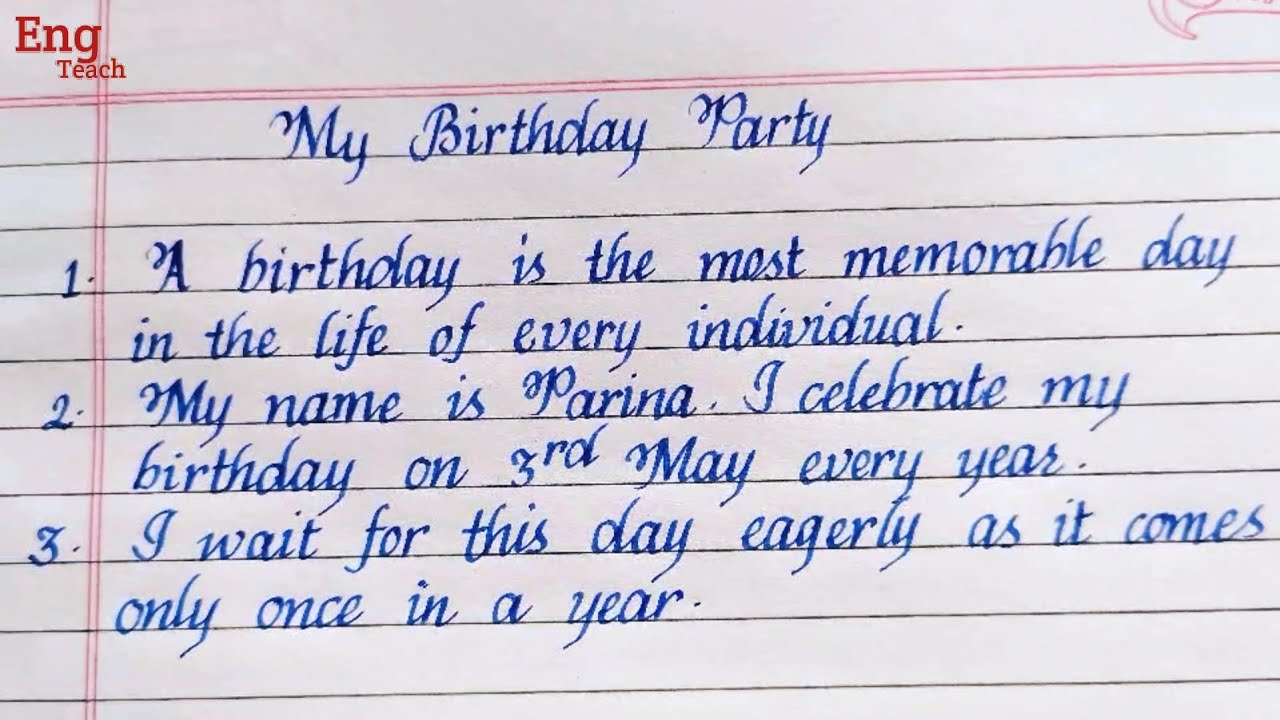 Eng
Teach
My Birthday Party
1. A birthday is the most memorable day
in the life of every individual.
2. My name is Parina. I celebrate my
birthday on 3rd May every year.
3. I wait for this day eagerly as it comes
only once in a year.